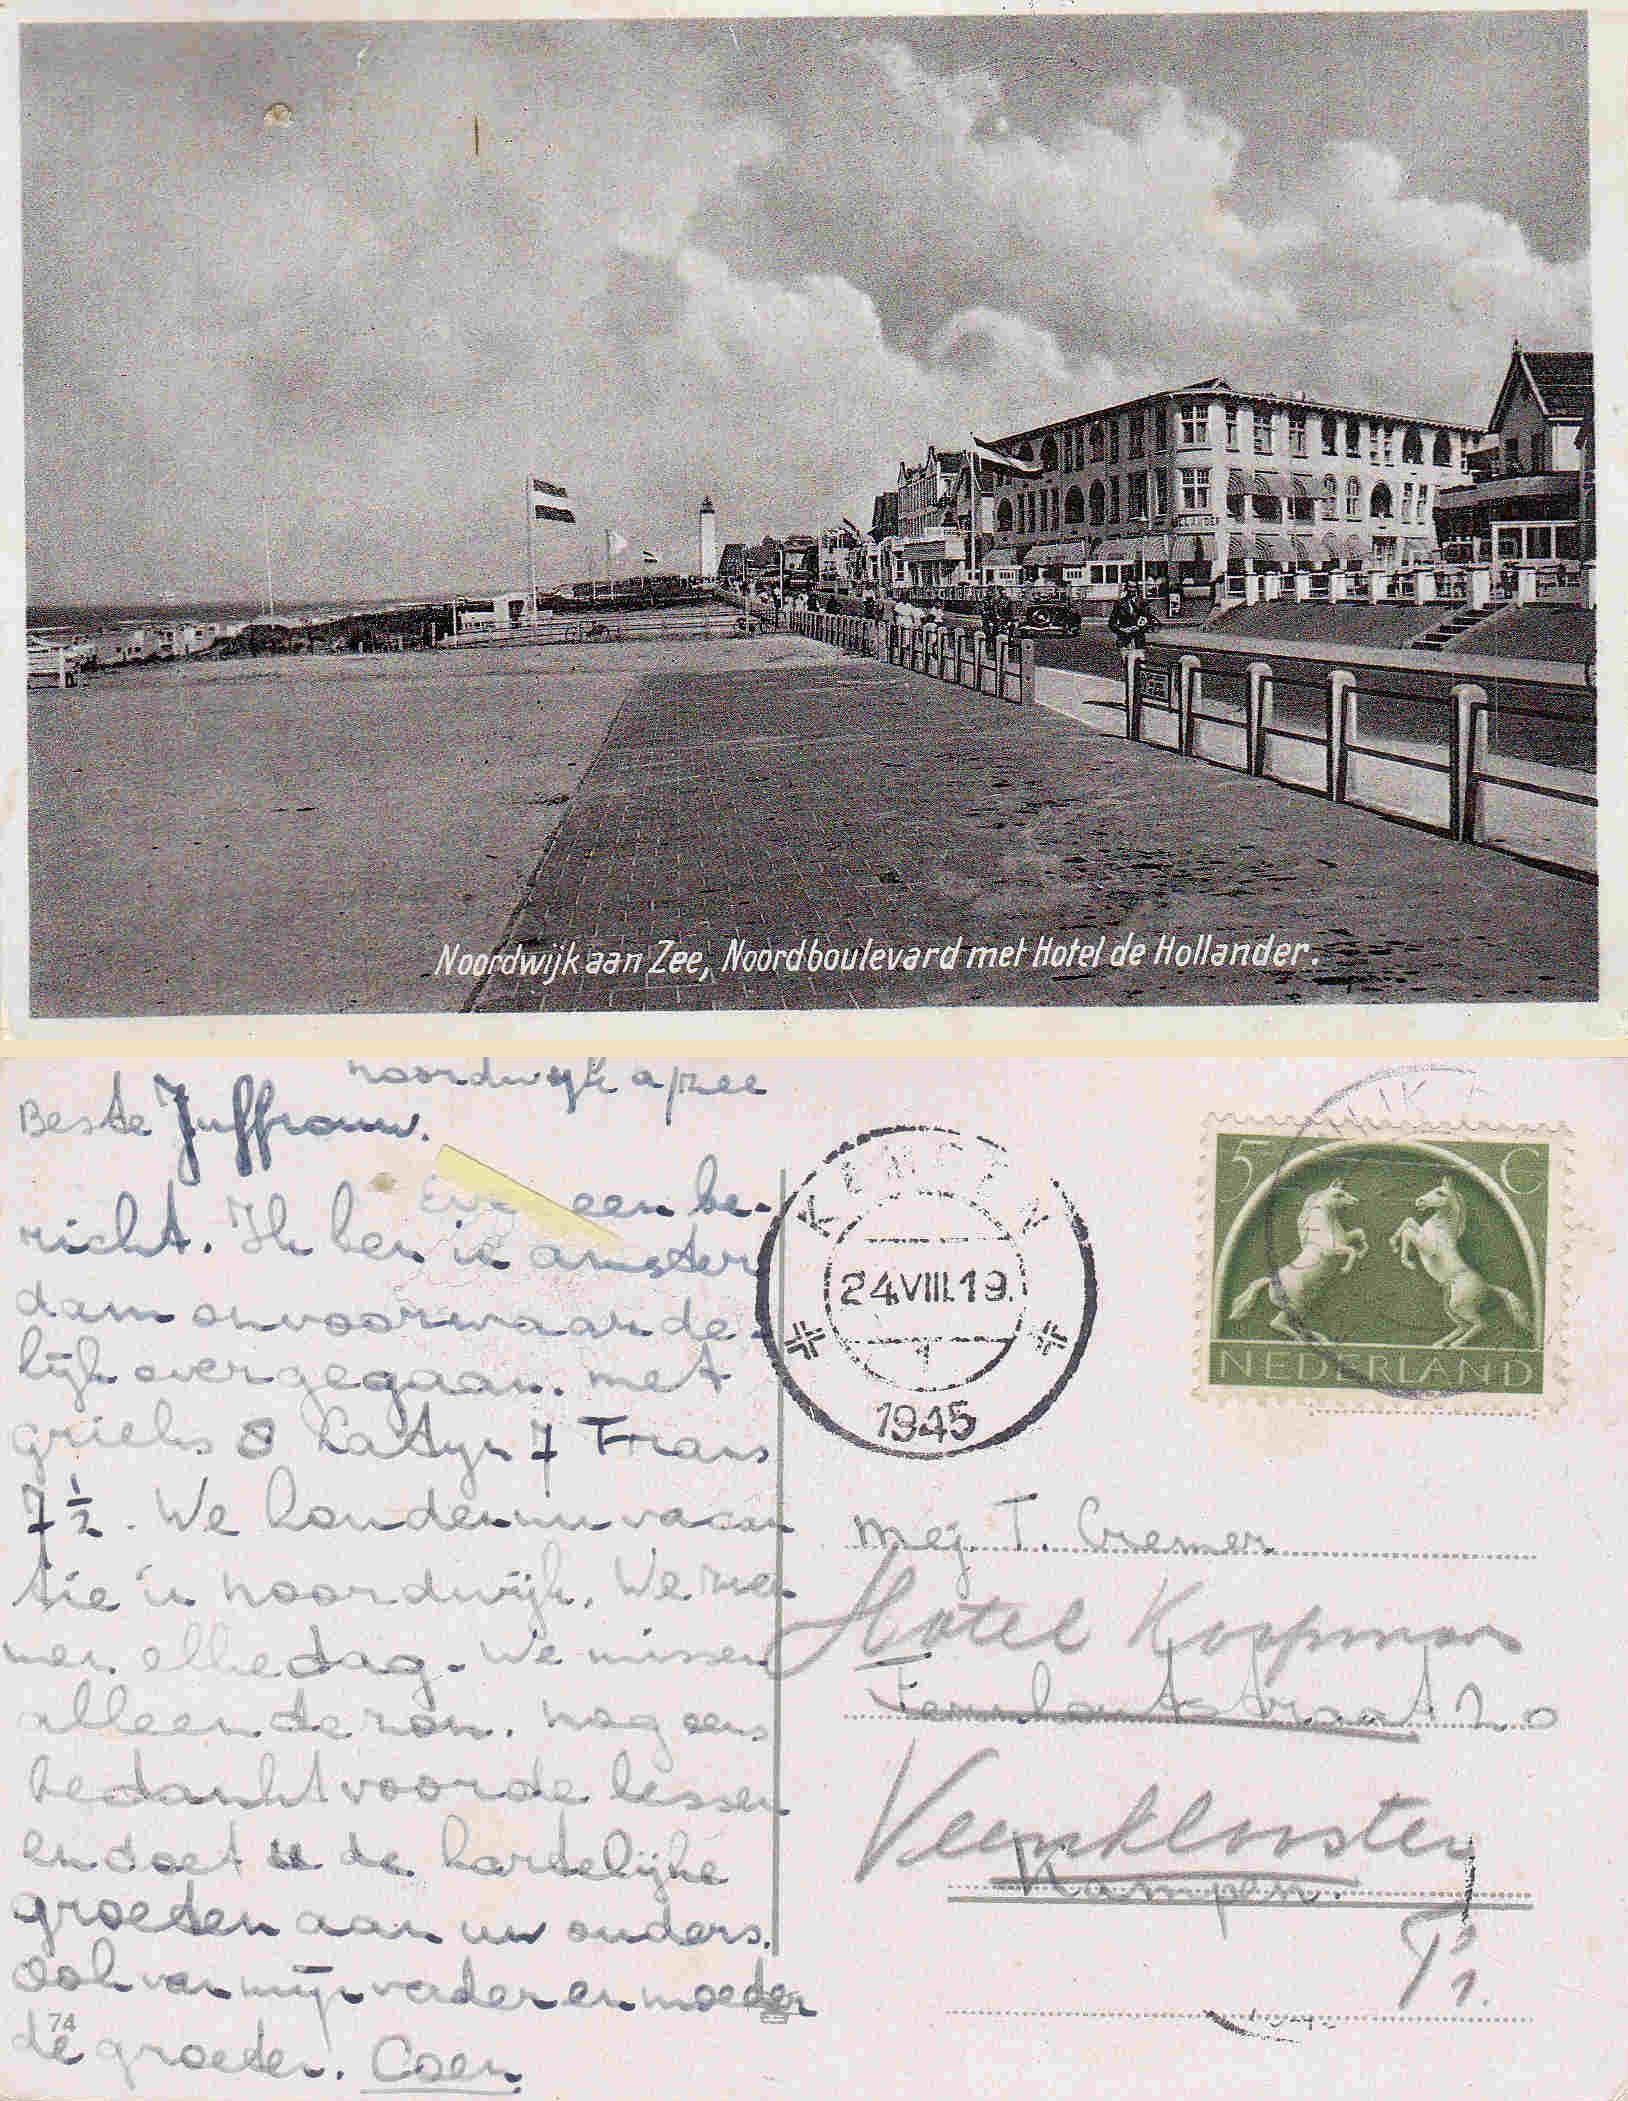 Noordwijk aan Zee, Noordboulevard met Hotel de Hollander.
noordwijk a/zee
Beste Juffrouw.
een be-
richt. Ik ben in amster
dam onvoorwaarde-
lijk overgegaan. met
grieks 8 Latijn 7 Frans
7 1/2. We houden nu vacan
tie in noordwijk. We zwem
men elke dag. We missen
alleen de zon. nog eens
bedankt voor de lessen
en doet u de hartelijke
groeten aan uw ouders.
Ook van mijn vader en moeder
de groeten. Coen.
74
24.VIII.19.
1945
5 C
NEDERLAND
Mej. T. Cremer
Hotel Koopmans
20
Veenklooster
Kampen.
Fr.